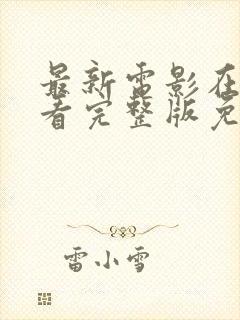 最新雷影在
看完整版免
雷小雪